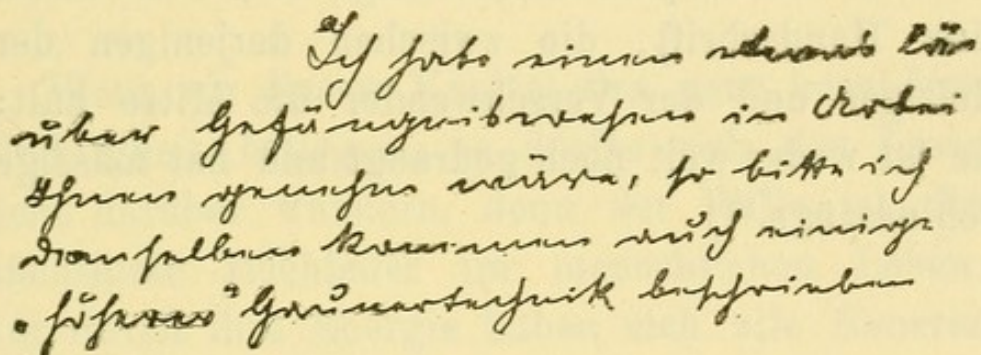 Ich habe einen etwas län
über Gefängniswesen in Arbei
Ihnen genehm wäre, so bitte ich
denselben kommen auch einige
„höherer" Gaunertechnik beschrieben